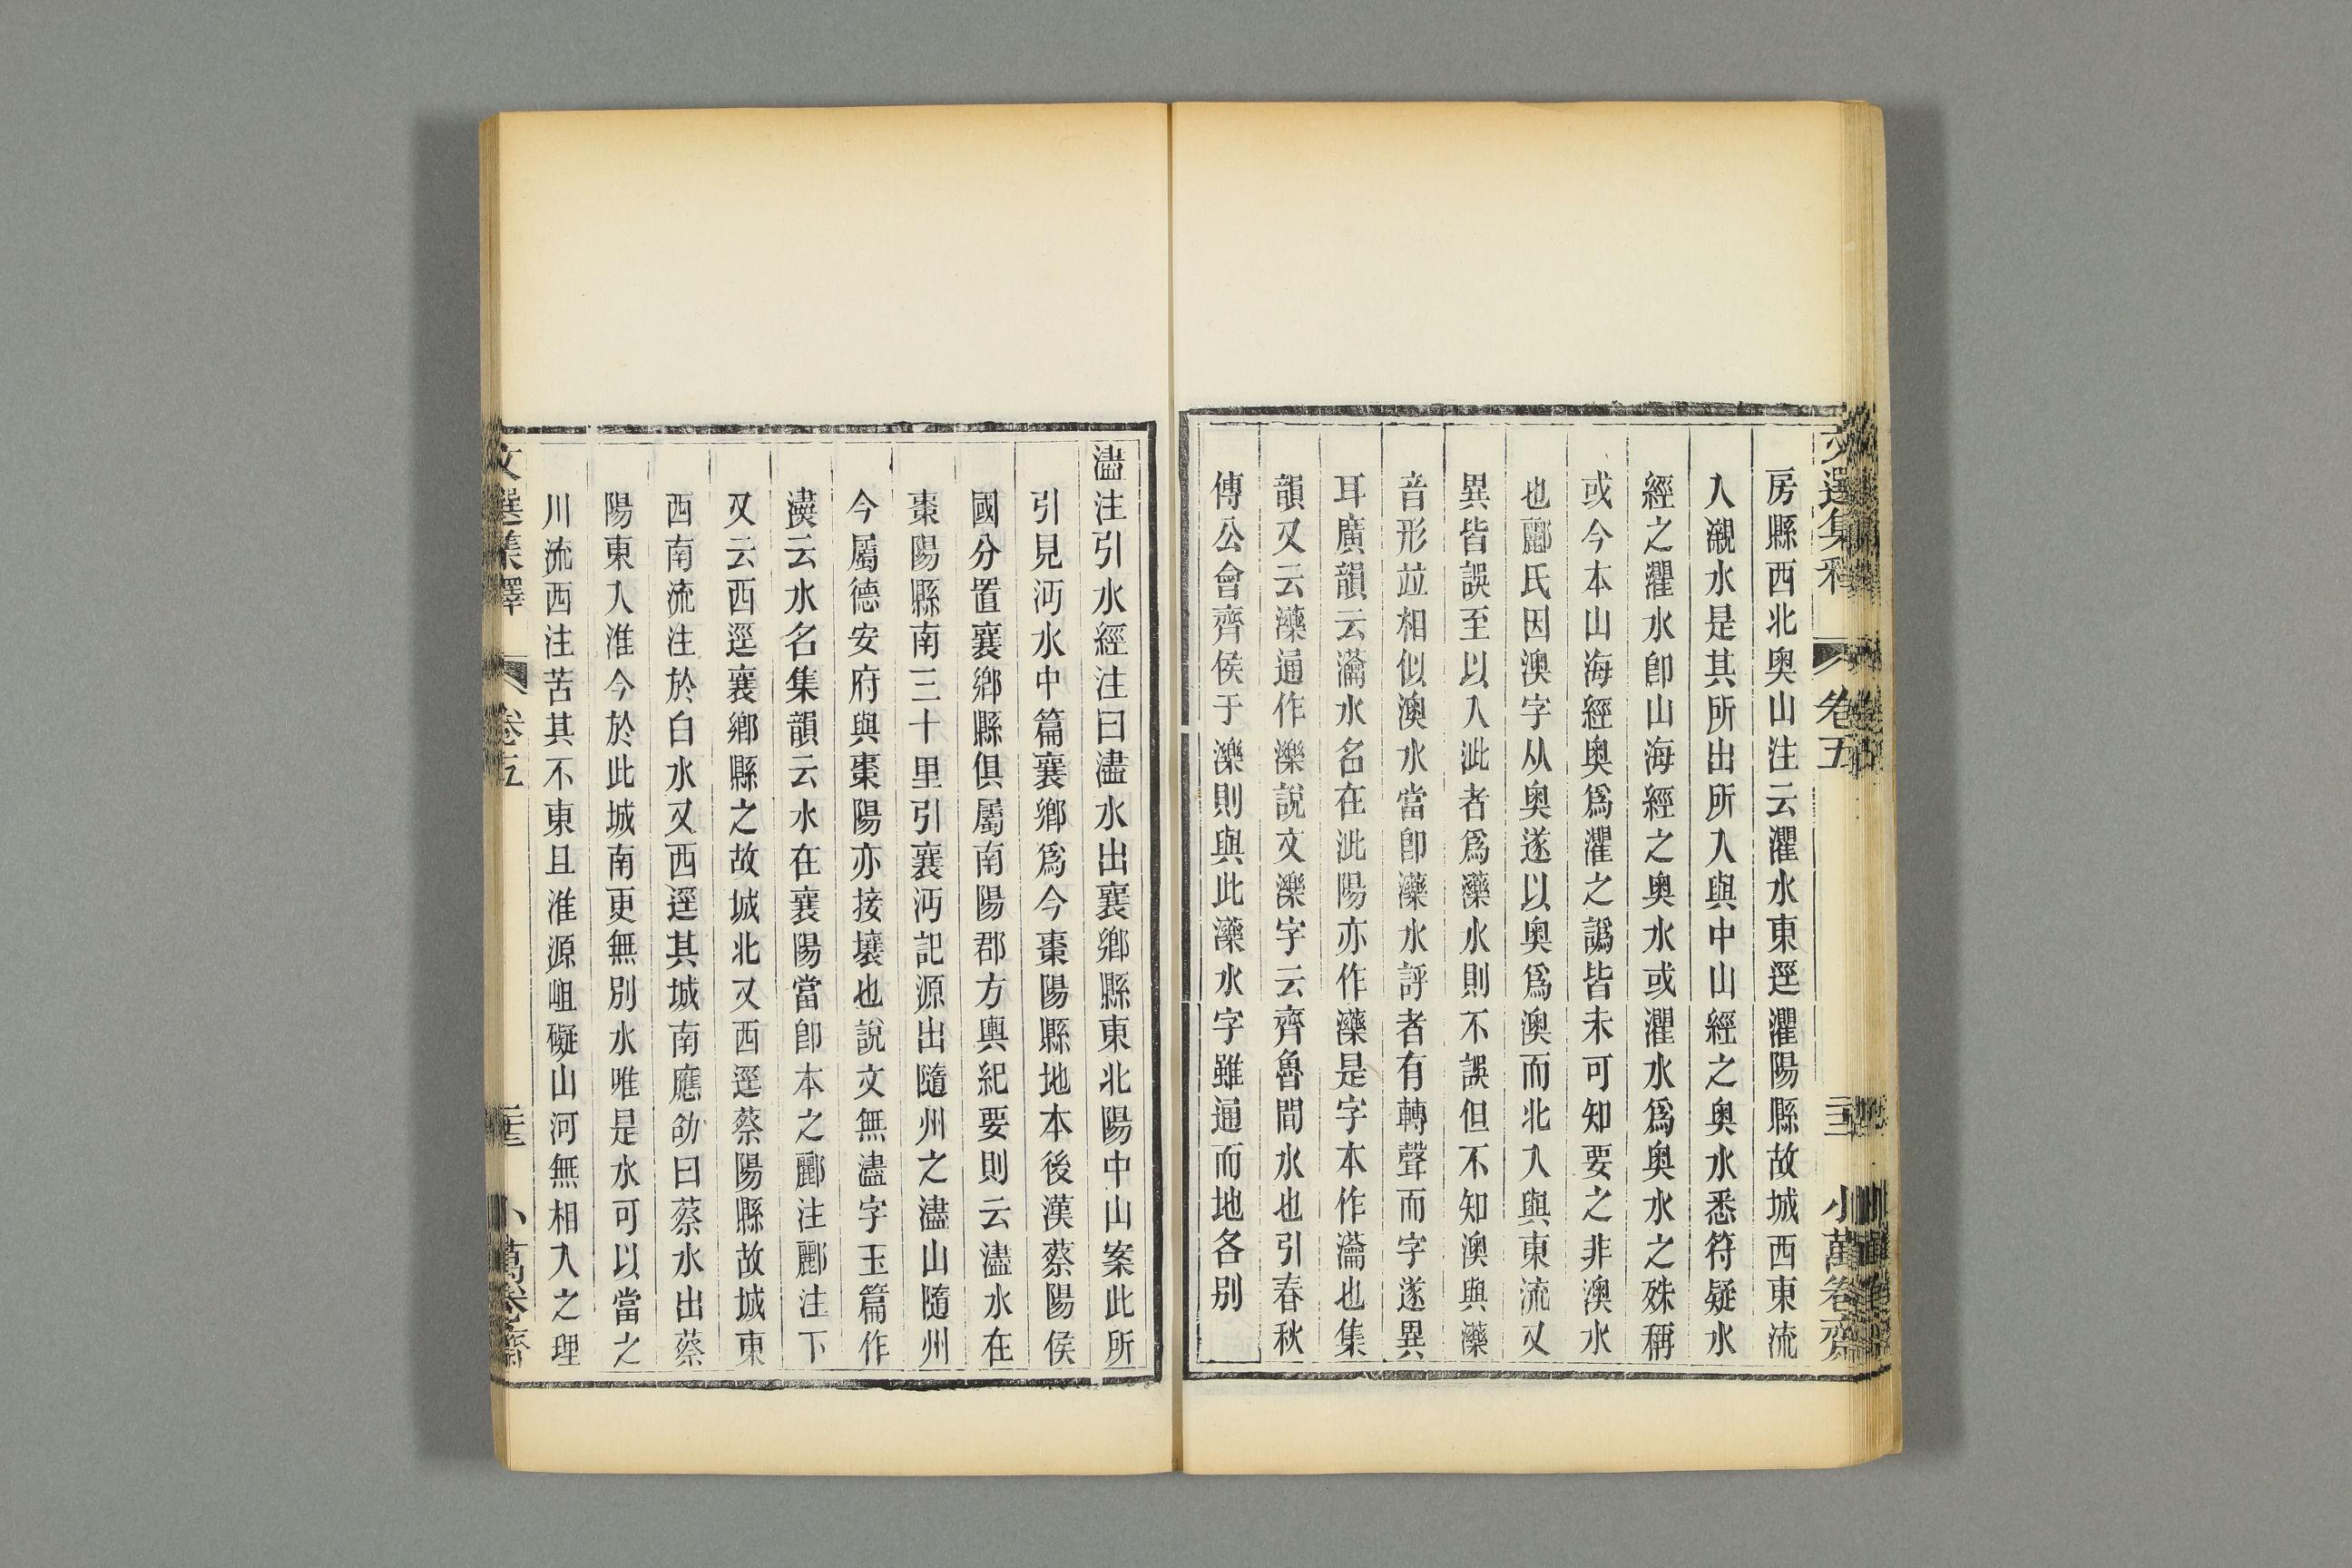 文選集釋 卷五 三 小萬卷齋
房縣西北奥山注云灈水東逕灈陽縣故城西東流
入瀙水是其所出所入與中山經之奥水悉符疑水
經之灈水卽山海經之奥水或灈水爲奥水之殊稱
或今本山海經奥爲灈之譌皆未可知要之非澳水
也酈氏因澳字从奥遂以奥爲澳而北入與東流又
異皆誤至以入泚者爲灤水則不誤但不知澳與灤
音形竝相似澳水當卽灤水評者有轉聲而字遂異
耳廣韻云㶜水名在泚陽亦作灤是字本作㶜也集
韻又云灤通作濼說文濼字云齊魯間水也引春秋
傳公會齊侯于濼則與此灤水字雖通而地各别
濜注引水經注曰濜水出襄鄉縣東北陽中山案此所
引見沔水中篇襄鄉爲今棗陽縣地本後漢蔡陽侯
國分置襄鄉縣俱屬南陽郡方輿紀要則云濜水在
棗陽縣南三十里引襄沔記源出隨州之濜山隨州
今屬德安府與棗陽亦接壤也說文無濜字玉篇作
濜云水名集韻云水在襄陽當卽本之酈注酈注下
又云西逕襄鄉縣之故城北又西逕蔡陽縣故城東
西南流注於白水又西逕其城南應劭曰蔡水出蔡
陽東入淮今於此城南更無別水唯是水可以當之
川流西注苦其不東且淮源岨礙山河無相入之理
文選集釋 卷五 小萬卷齋